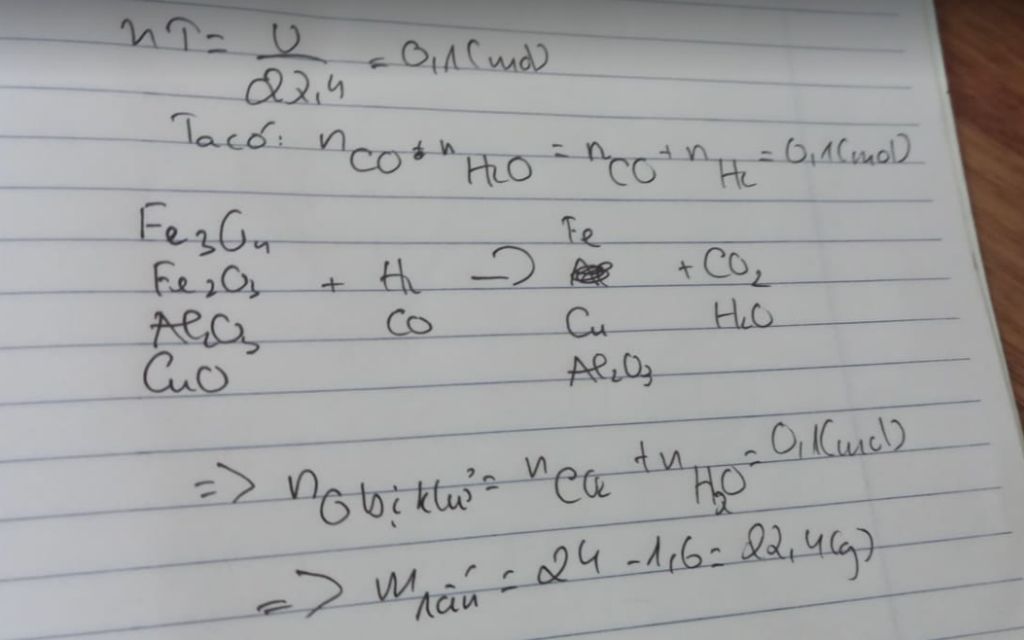 nT = V/22,4 = 0,1 (mol)
Ta có: nCO + nH2O = nCO + nH2 = 0,1 (mol)
Fe3O4 Fe
Fe2O3 + H2 → + CO2
Al2O3 CO Cu H2O
CuO Al2O3
=> nO bị khử = nCO2 + nH2O = 0,1 (mol)
=> m rắn = 24 - 1,6 = 22,4 (g)